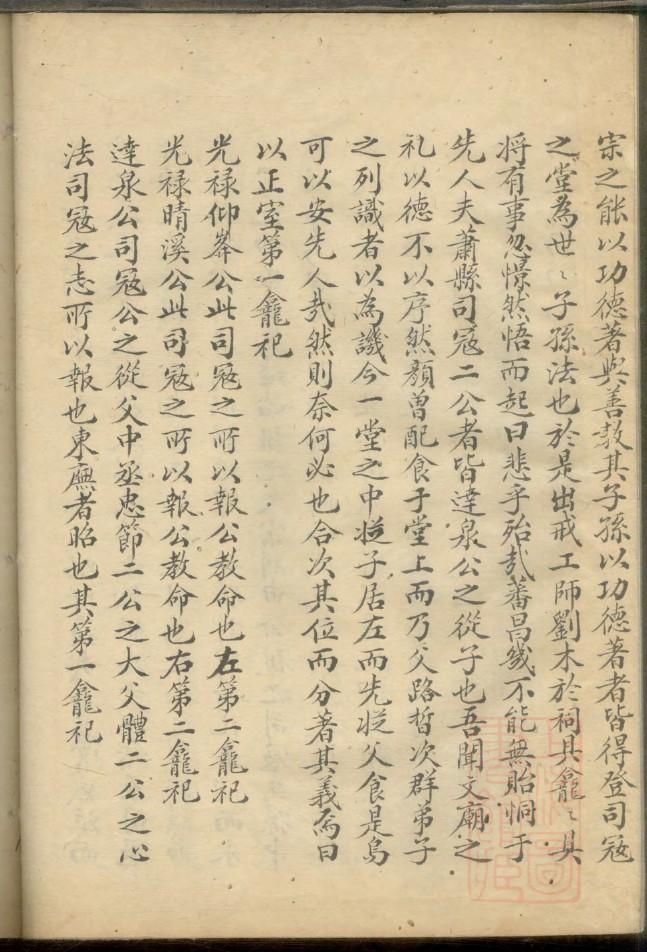 宗之能以功德著與善教其子孫以功德著者皆得登司寇
之堂為世〻子孫法也於是出戒工師劉木於祠具龕〻具
將有事忽憬然悟而起曰悲乎殆哉蕃昌幾不能無貽恫于
先人夫蕭縣司寇二公者皆達泉公之從子也吾聞文廟之
礼以德不以序然顏曾配食于堂上而乃父路晳次群弟子
之列識者以為譏今一堂之中從子居左而先從父食是烏
可以安先人哉然則奈何必也合次其位而分著其義焉曰
以正室第一龕祀
光禄仰峯公此司寇之所以報公教命也左第二龕祀
光禄晴溪公此司寇之所以報公教命也右第二龕祀
達泉公司寇公之從父中丞忠節二公之大父體二公之心
法司寇之志所以報也東廡者昭也其第一龕祀